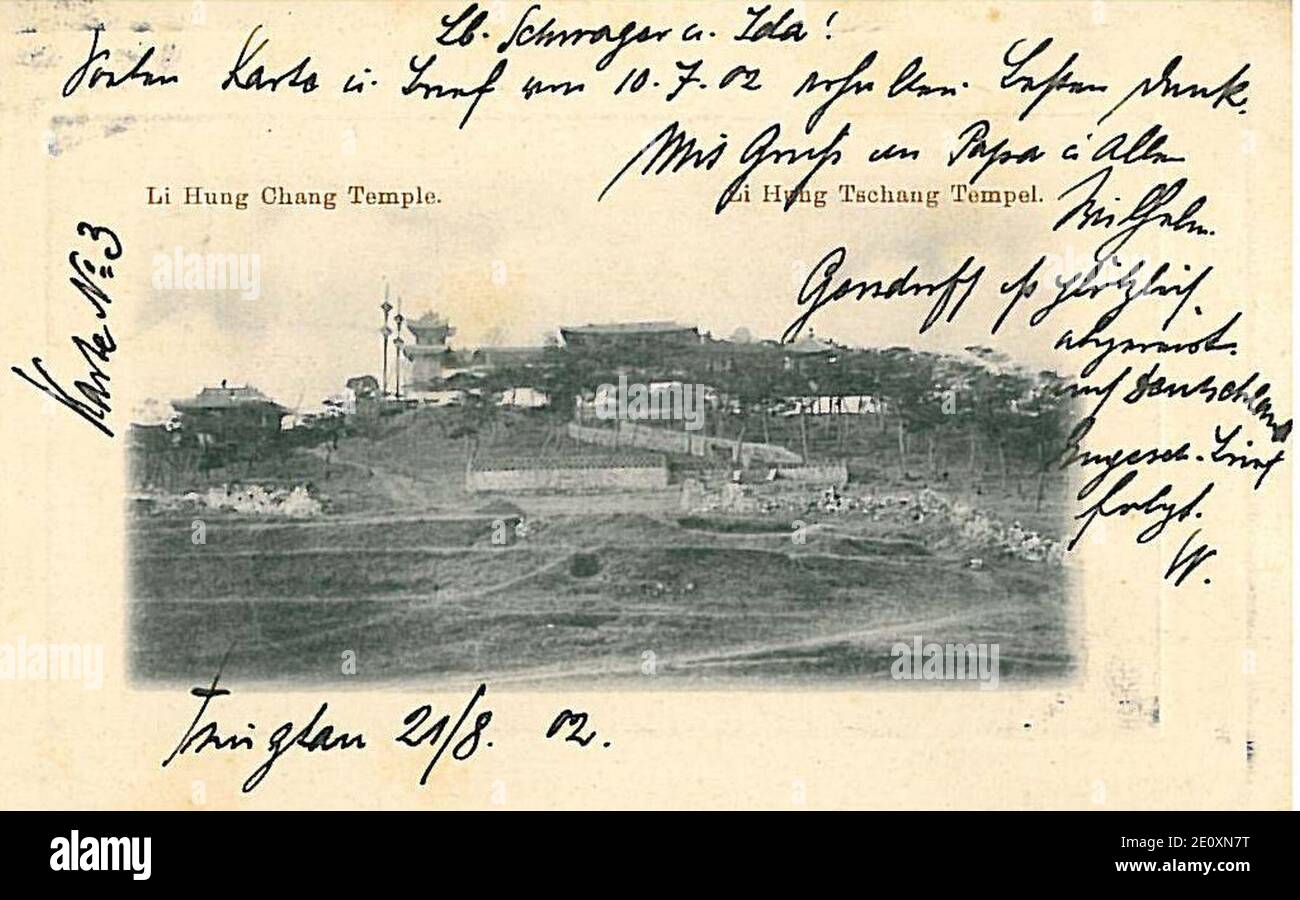 Lb. Schwager u. Ida!
Soeben Karte u. Brief vom 10.7.02 erhalten. Besten Dank.
Mit Gruß an Papa u Alle
Wilhelm.
Li Hung Chang Temple.
Li Hung Tschang Tempel.
Karte No 3
ist plötzlich
abgereist.
auf Deutschland
Brief
folgt.
W.
Tsingtau 21/8. 02.
alamy
Image ID: 2E0XN7T
www.alamy.com